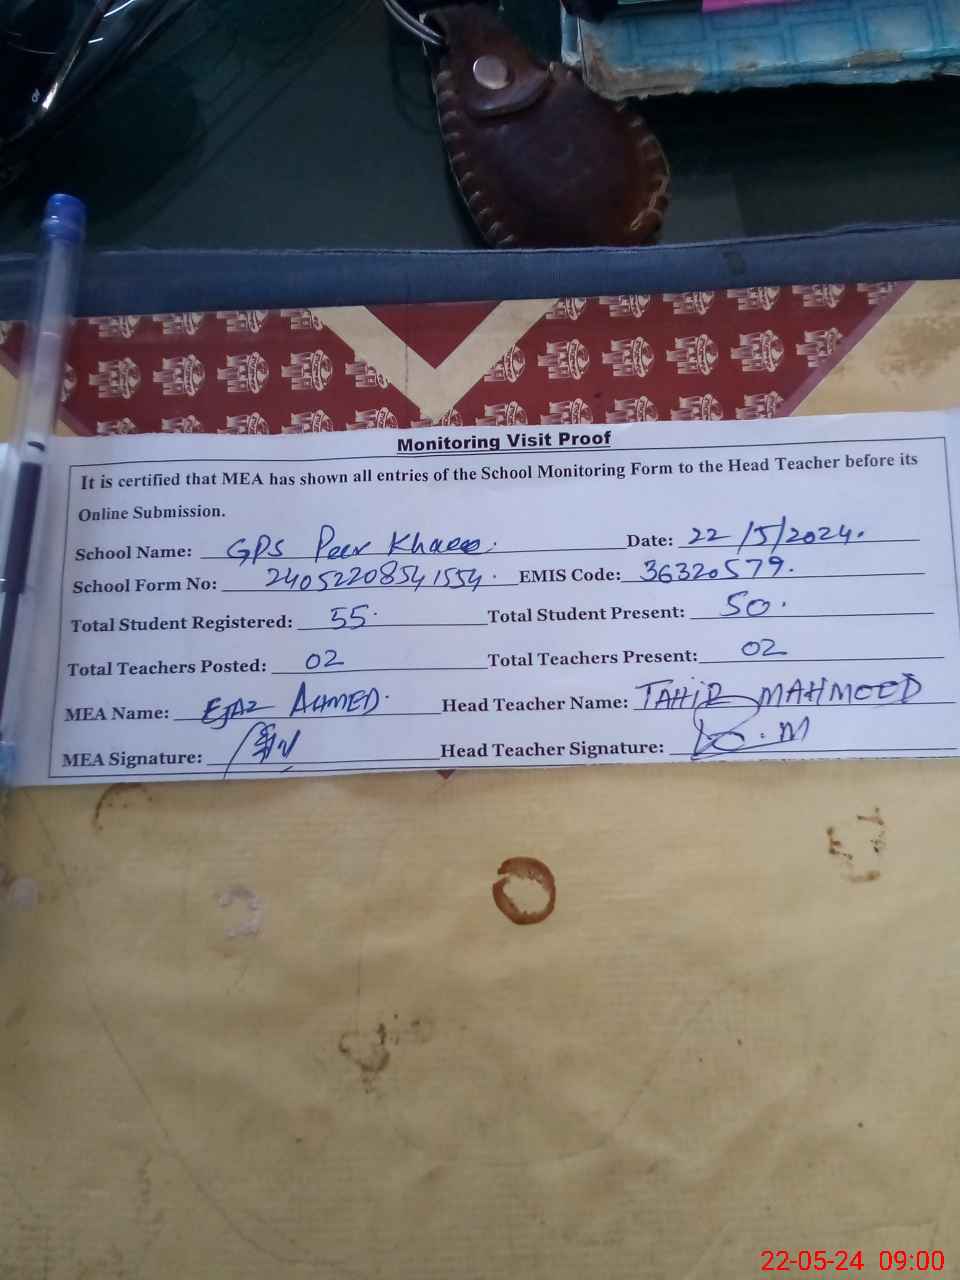 Monitoring Visit Proof
It is certified that MEA has shown all entries of the School Monitoring Form to the Head Teacher before its
Online Submission.
School Name: GPS Peer Date: 22/5/2024.
School Form No: 24052208541554. EMIS Code: 36320579.
Total Student Registered: 55. Total Student Present: 50.
Total Teachers Posted: 02 Total Teachers Present: 02
MEA Name: EJAZ AHMED. Head Teacher Name: TAHIR MAHMOOD
MEA Signature: Head Teacher Signature:
22-05-24 09:00